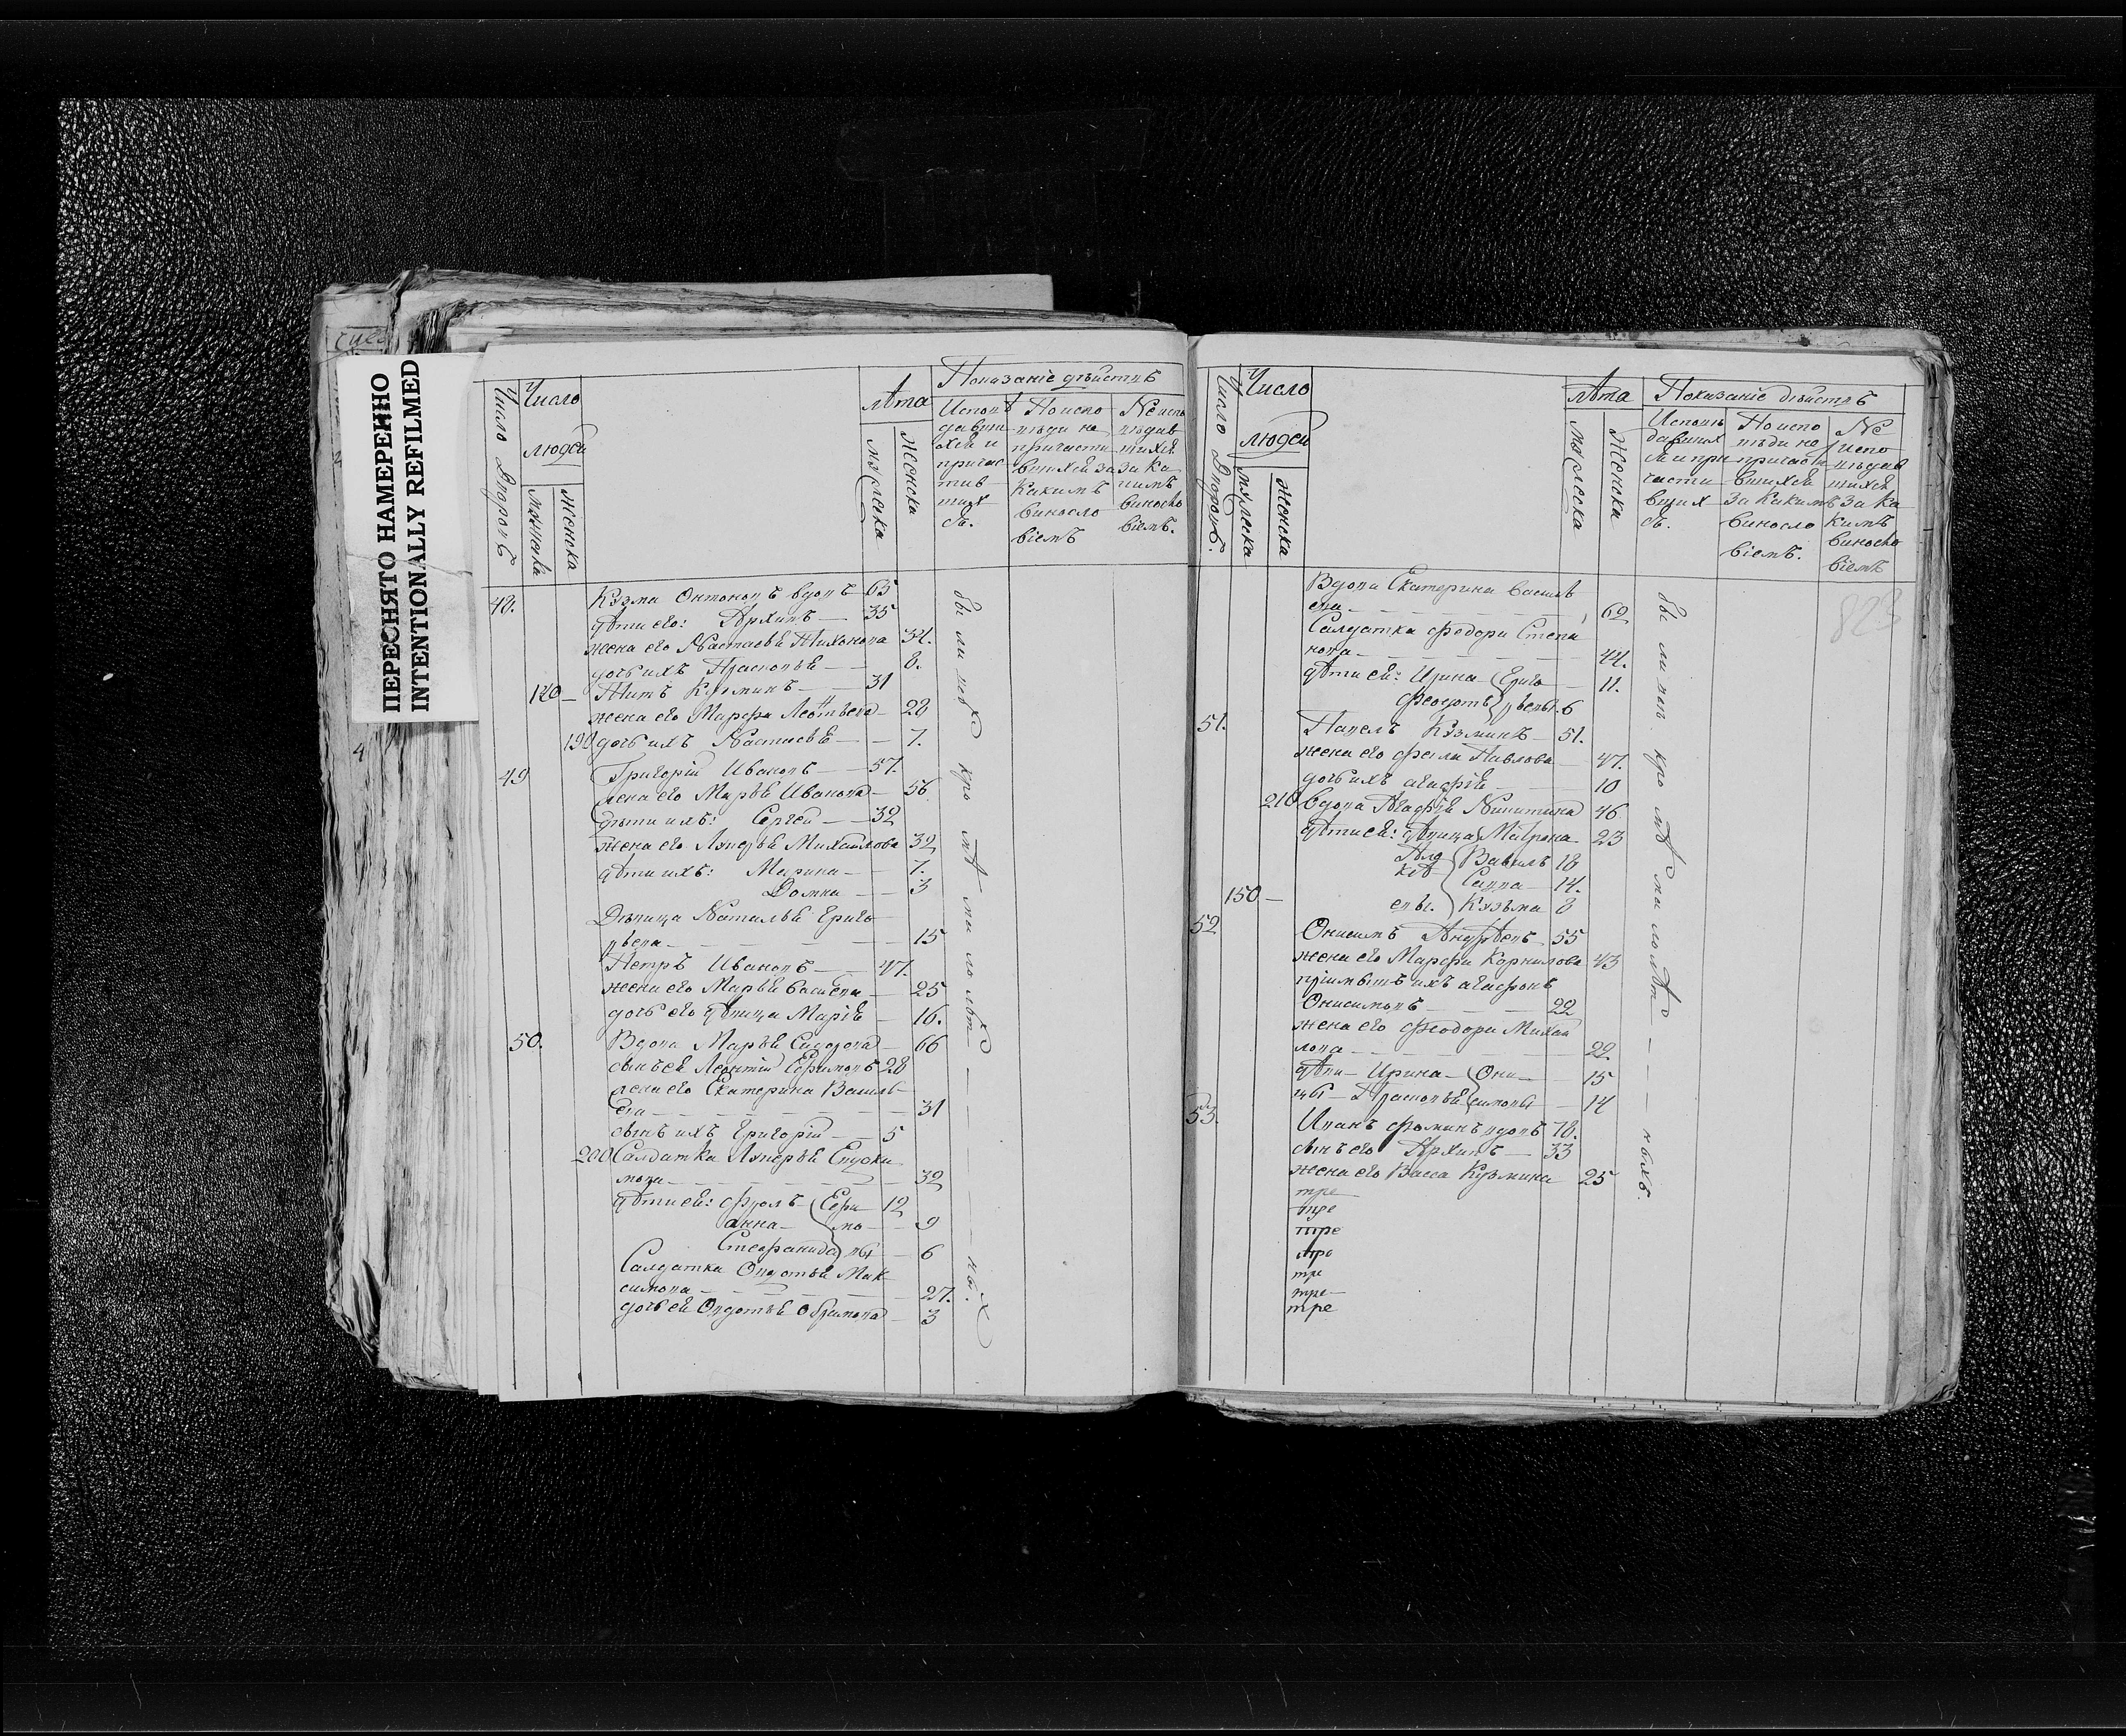 ПЕРЕСНЯТО НАМЕРЕННО
INTENTIONALLY REFILMED
4
Число Дворовъ
Число
людей
мужеска
женска
лѣта
мужеска
женска
Показаніе дѣйствъ
Исповѣ
давши
хся и
причас
тив
шихъ
съ.
По испо
вѣди не
причасти
вшихся за
какимъ
виносло
віемъ
Не испо
вѣдав
шихся
за ка
кимъ
виносло
віемъ.
48. Кузма Онтоновъ вдовъ 65
дѣти его: Архипъ — 35
жена его Настасья Тихонова 34.
дочь ихъ Прасковья — 8.
140 — Титъ Кузминъ — 31
жена его Марфа Леонтьева — 28
190 дочь ихъ Настасья — 7.
49 Григорій Ивановъ — 57.
жена его Марья Иванова — 56
дѣти ихъ: Сергей — 32
жена его Лукерья Михайлова 32
дѣти ихъ: Марина — 7.
Домна — 3
Дѣвица Наталья Григо
рьева — 15
Петръ Ивановъ — 47.
жена его Марья Васи — 25
дочь его дѣвица Марія — 16.
50. Вдова Марья Сидорова — 66
сынъ ей Леонтій Ефимовъ 28
жена его Екатерина Василь
ева — 31
сынъ ихъ Григорій — 5
200 Салдатка Лукерья Евдоки
мова — 32
дѣти ей: Фролъ Ефи 12
анна — мо — 9
Стефанида вы — 6
Салдатка Овдотья Мак
симова — 27.
дочь ей Овдотья Ефимова — 3
бы ли всѣ кро мѣ ма ло лѣт — ны хъ
Число Дворовъ.
Число
людей
мужеска
женска
лѣта
мужеска
женска
Показаніе дѣйствъ
Исповѣ
давших
ся и при
части
вших
съ.
По испо
вѣди не
причасти
вшихся
за какимъ
виносло
віемъ.
Не
испо
вѣдав
шихся
за ка
кимъ
виносло
віемъ
823
Вдова Екатерина Василь
ева — 62
Салдатка Федора Степа
нова — 44.
дѣти ей: Ирина Григо — 11.
Феодотъ рьевы. 6
51. Павелъ Кузминъ — 51.
жена его Фекла Павлова — 47.
дочь ихъ агафія — 10
210 вдова Агафія Никитина 46
дѣти ей: дѣвица Матрона 23
Але Вавилъ 18
ксѣ Савва — 14.
150 — евы. Кузьма 8
52 Онисимъ Андрѣевъ 55
жена его Марфа Корнилова 43
пріимышъ ихъ агафонъ
Онисимовъ — 22
жена его Феодора Михай
лова — 22.
дѣви — Ирина — Они — 15
цы — Прасковья симовы — 14
53. Иванъ Фоминъ вдовъ 78.
сынъ его Архипъ — 33
жена его Васса Кузмина 25
тре
тре
тре
тре
тре
тре
тре
бы ли всѣ кро мѣ ма ло лѣт — ныхъ.